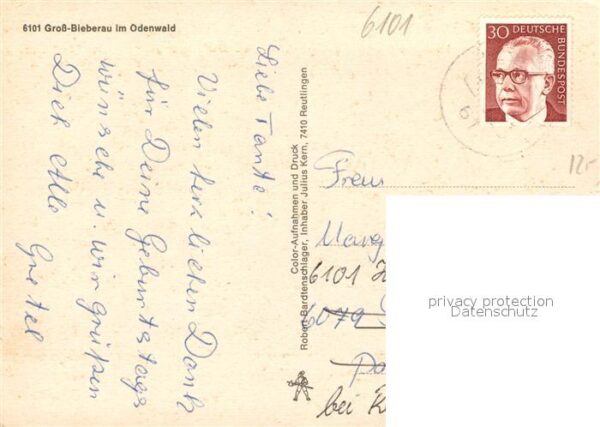 6101 Groß-Bieberau im Odenwald
6101
30 DEUTSCHE
BUNDESPOST
Liebe Tante!
Vielen herzlichen Dank
für Deine Geburtstags
wünsche u. wir grüßen
Dich Alle
Gretel
Color-Aufnahmen und Druck
Robert Bardtenschlager, Inhaber Julius Kern, 7410 Reutlingen
12,-
Frau
6101
6079
bei
privacy protection
Datenschutz